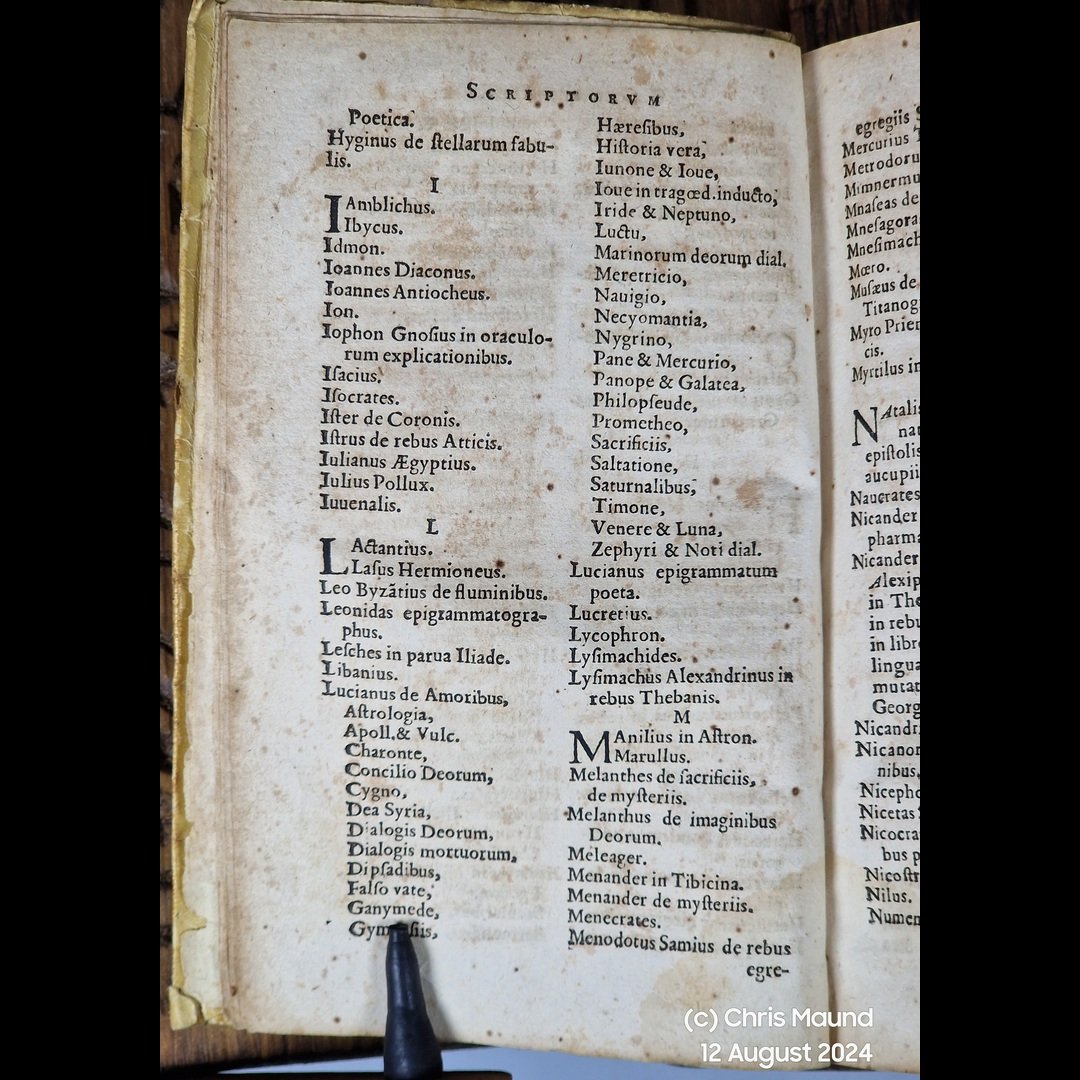 SCRIPTORVM
Poetica.
Hyginus de ſtellarum fabu-
lis.
I
IAmblichus.
Ibycus.
Idmon.
Ioannes Diaconus.
Ioannes Antiocheus.
Ion.
Iophon Gnoſius in oraculo-
rum explicationibus.
Iſacius.
Iſocrates.
Iſter de Coronis.
Iſtrus de rebus Atticis.
Iulianus Ægyptius.
Iulius Pollux.
Iuuenalis.
L
LActantius.
Laſus Hermioneus.
Leo Byzãtius de fluminibus.
Leonidas epigrammatogra-
phus.
Leſches in parua Iliade.
Libanius.
Lucianus de Amoribus,
Aſtrologia,
Apoll.& Vulc.
Charonte,
Concilio Deorum,
Cygno,
Dea Syria,
Dialogis Deorum,
Dialogis mortuorum,
Dipſadibus,
Falſo vate,
Ganymede,
Hæreſibus,
Hiſtoria vera,
Iunone & Ioue,
Ioue in tragœd.inducto,
Iride & Neptuno,
Luctu,
Marinorum deorum dial.
Meretricio,
Nauigio,
Necyomantia,
Nygrino,
Pane & Mercurio,
Panope & Galatea,
Philopſeude,
Prometheo,
Sacrificiis,
Saltatione,
Saturnalibus,
Timone,
Venere & Luna,
Zephyri & Noti dial.
Lucianus epigrammatum
poeta.
Lucretius.
Lycophron.
Lyſimachides.
Lyſimachus Alexandrinus in
rebus Thebanis.
M
MAnilius in Aſtron.
Marullus.
Melanthes de ſacrificiis,
de myſteriis.
Melanthus de imaginibus
Deorum.
Meleager.
Menander in Tibicina.
Menander de myſteriis.
Menecrates.
Menodotus Samius de rebus
egre-
egregiis
Mercurius
Metrodoru
Mimnermu
Mnaſeas de
Mneſagora
Mneſimach
Mœro.
Muſæus de
Titanog
Myro Prien
cis.
Myrtilus in
NAtalis
nat
epiſtolis
aucupii
Naucrates
Nicander
pharma
Nicander
Alexip
in The
in rebu
in libro
lingua
mutat
Georg
Nicandr
Nicanor
nibus,
Nicepho
Nicetas
Nicocra
bus p
Nicoſtr
Nilus.
Numen
(c) Chris Maund
12 August 2024